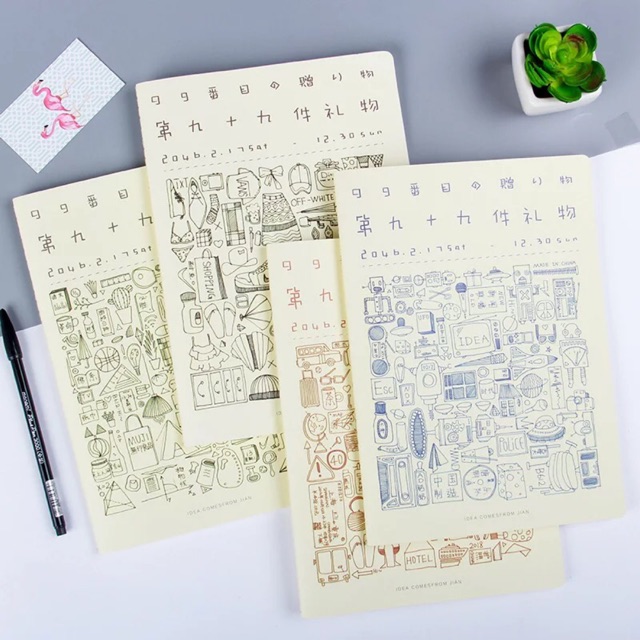 99番目の贈り物
第九十九件礼物
2046.2.17sat - 12.30sun
OFF-WHITE
99番目の贈り物
第九十九件礼物
2046.2.17sat - 12.30sun
MADE IN CHINA
IDEA
中国
制造
IDEA COMESFROM JIAN
99番目
第九十
2046.2.17sat
MUJI
無印良品
IDEA COMESFROM JIAN
第九
2046.2
HOTEL
2018
IDEA COMESFROM JIAN